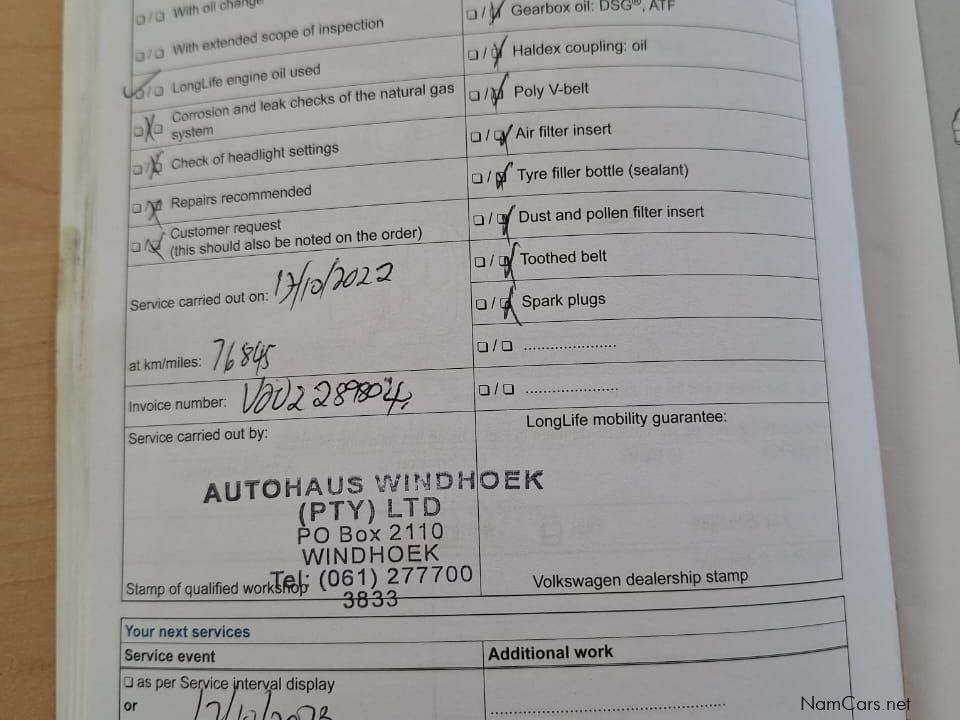 ❏/❏ With oil change
❏/❏ With extended scope of inspection
❏/❏ LongLife engine oil used
❏/❏ Corrosion and leak checks of the natural gas
system
❏/❏ Check of headlight settings
❏/❏ Repairs recommended
❏/❏ Customer request
(this should also be noted on the order)
Service carried out on: 17/10/2022
at km/miles: 76845
Invoice number:
Service carried out by:
AUTOHAUS WINDHOEK
(PTY) LTD
PO Box 2110
WINDHOEK
Tel: (061) 277700
3833
Stamp of qualified workshop
❏/❏ Gearbox oil: DSG®, ATF
❏/❏ Haldex coupling: oil
❏/❏ Poly V-belt
❏/❏ Air filter insert
❏/❏ Tyre filler bottle (sealant)
❏/❏ Dust and pollen filter insert
❏/❏ Toothed belt
❏/❏ Spark plugs
❏/❏ ......................
❏/❏ ......................
LongLife mobility guarantee:
Volkswagen dealership stamp
Your next services
Service event
❏ as per Service interval display
or 17/10/2023
Additional work
NamCars.net